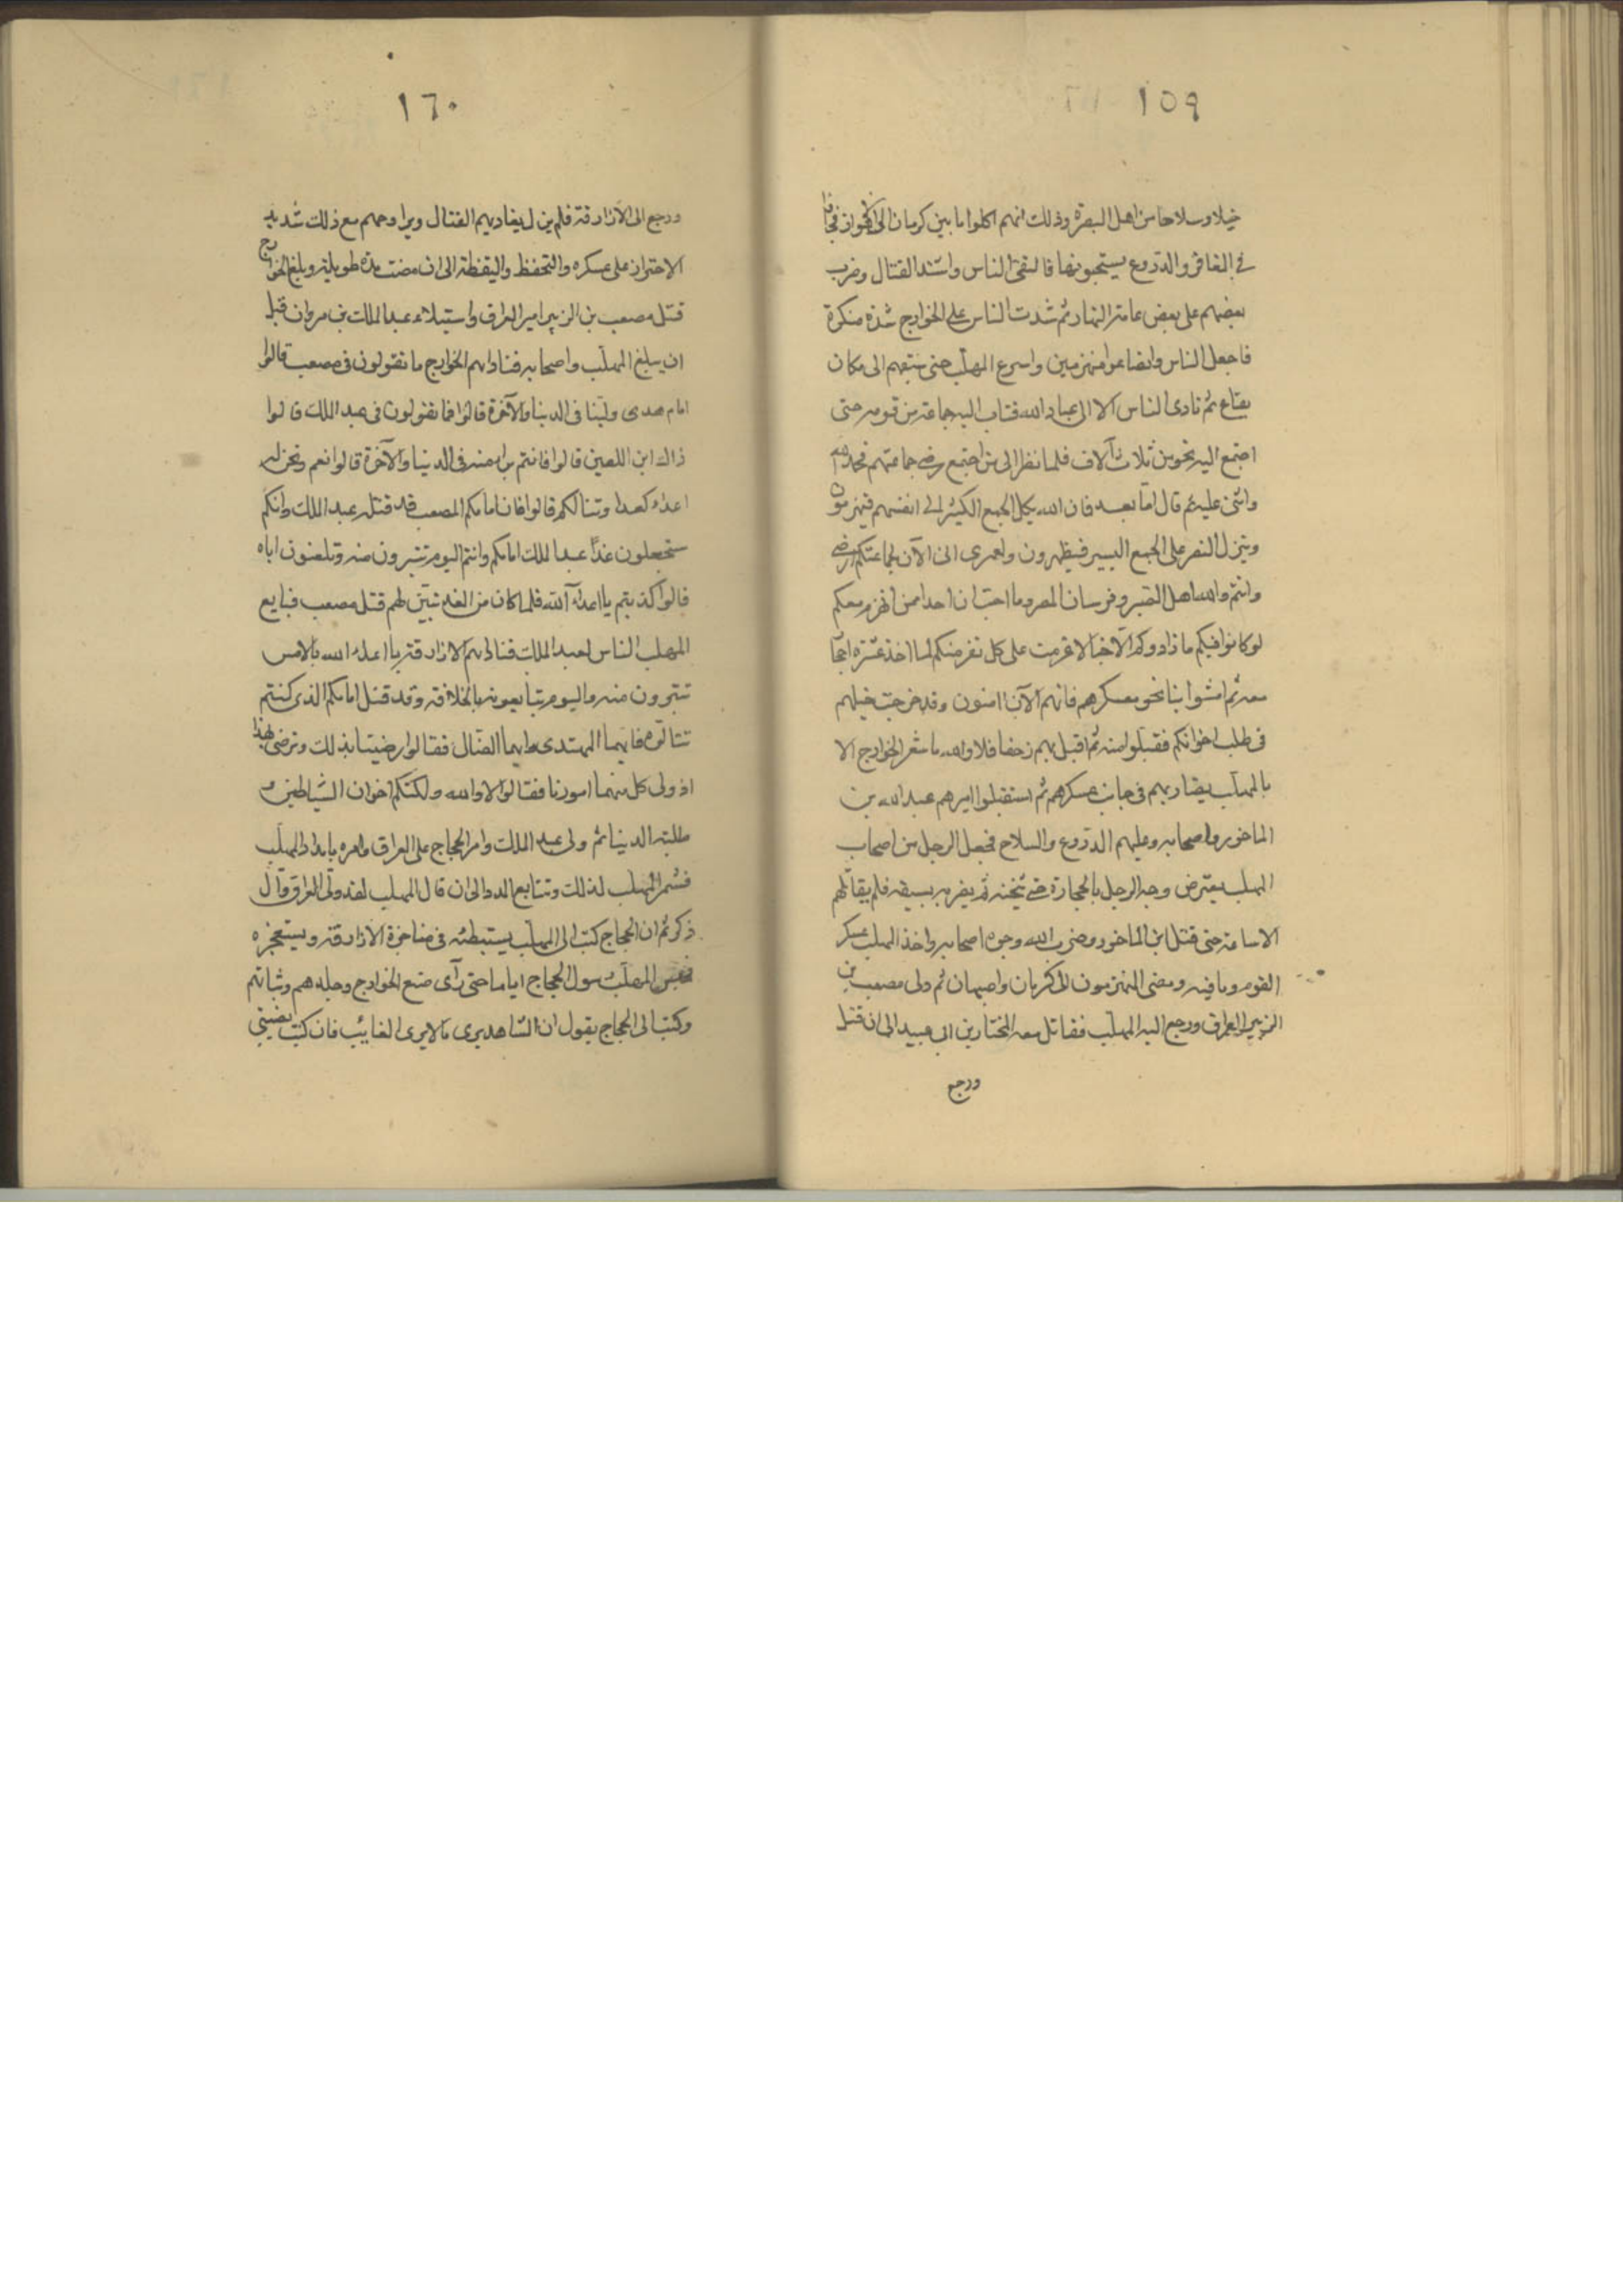 ١٥٩
خيلا وسلاحا من اهل البصرة وذلك انهم اكلوا ما بين كرمان الى الاهواز فجاؤا
في المغافر والدروع يستحبونها فالتقى الناس واشتد القتال وضرب
بعضهم على بعض عامة النهار ثم شدت الناس على الخوارج شدة منكرة
فاجفل الناس وانصاعوا منهزمين واسرع المهلب حتى سبقهم الى مكان
يفاع ثم نادى الناس الا الى عباد الله فثاب اليه جماعة من قومه حتى
اجتمع اليه نحو من ثلاث آلاف فلما نظر الى من اجتمع رضى جماعتهم فحمد الله
واثنى عليه ثم قال اما بعد فان الله يكل الجمع الكثير الى انفسهم فيهزمون
وينزل النصر على الجمع اليسير فيظهرون ولعمرى انى الآن لجماعتكم راضى
وانتم والله اهل الصبر وفرسان المصر وما احب ان احدا ممن انهزم معكم
لو كانوا فيكم ما زادوكم الا خبالا عزمت على كل نفر منكم لما اخذ عشرة احجار
معه ثم امشوا بنا نحو معسكرهم فانهم الآن امنون وقد خرجت خيلهم
فى طلب اخوانكم فقبلوا منه ثم اقبل بهم زحفا فلا والله ما شعر الخوارج الا
بالمهلب يضاربهم فى جانب عسكرهم ثم استقبلوا اميرهم عبد الله بن
الماخور واصحابه وعليهم الدروع والسلاح فجعل الرجل من اصحاب
المهلب يعترض وجه الرجل بالحجارة حتى يثخنه ثم يضربه بسيفه فلم يقاتلهم
الا ساعة حتى قتل ابن الماخور وضرب الله وجوه اصحابه واخذ المهلب عسكر
القوم وما فيه ومضى المنهزمون الى كرمان واصبهان ثم ولى مصعب بن
الزبير العراق ورجع اليه المهلب فقاتل معه المختار بن ابى عبيد الى ان قتل
ورجع
١٦٠
ورجع الى الازارقة فلم يزل يغاديهم القتال ويراوحهم مع ذلك شديد
الاحتراز على عسكره والتحفظ واليقظة الى ان مضت مدة طويلة وبلغ الخوارج
قتل مصعب بن الزبير امير العراق واستيلاء عبد الملك بن مروان قبل
ان يبلغ المهلب واصحابه فناداهم الخوارج ما تقولون فى مصعب قالوا
امام هدى ولينا فى الدنيا والآخرة قالوا فما تقولون فى عبد الملك قالوا
ذاك ابن اللعين قالوا فانتم براء منه فى الدنيا والآخرة قالوا نعم ونحن له
اعداء كعدا وتنا لكم قالوا فان امامكم المصعب قد قتله عبد الملك وانكم
ستجعلون غدًا عبد الملك امامكم وانتم اليوم تتبرون منه وتلعنون اباه
قالوا كذبتم يا اعداء الله فلما كان من الغد تبين لهم قتل مصعب فبايع
المهلب الناس لعبد الملك فناداهم الازارقة يا اعداء الله بالامس
تتبرون منه واليوم تبايعونه بالخلافة وقد قتل امامكم الذى كنتم
تتالوه فايهما المهتدى وايهما الضال فقالوا رضينا بذلك ونرضى بهذا
اذ ولى كل منهما امورنا فقالوا لا والله ولكنكم اخوان الشياطين و
طلبة الدنيا ثم ولى عبد الملك وامر الحجاج على العراق وامره بامداد المهلب
فشمر المهلب لذلك وتتابع المدد الى ان قال المهلب لقد ولى العراق وال
ذكر ثم ان الحجاج كتب الى المهلب يستبطئه فى مناجزة الازارقة ويستعجزه
فحبس المهلب رسول الحجاج اياما حتى رآى صنع الخوارج وجلدهم وثباتهم
وكتب الى الحجاج يقول ان الشاهد يرى ما لا يرى الغائب فان كنت نصبتنى